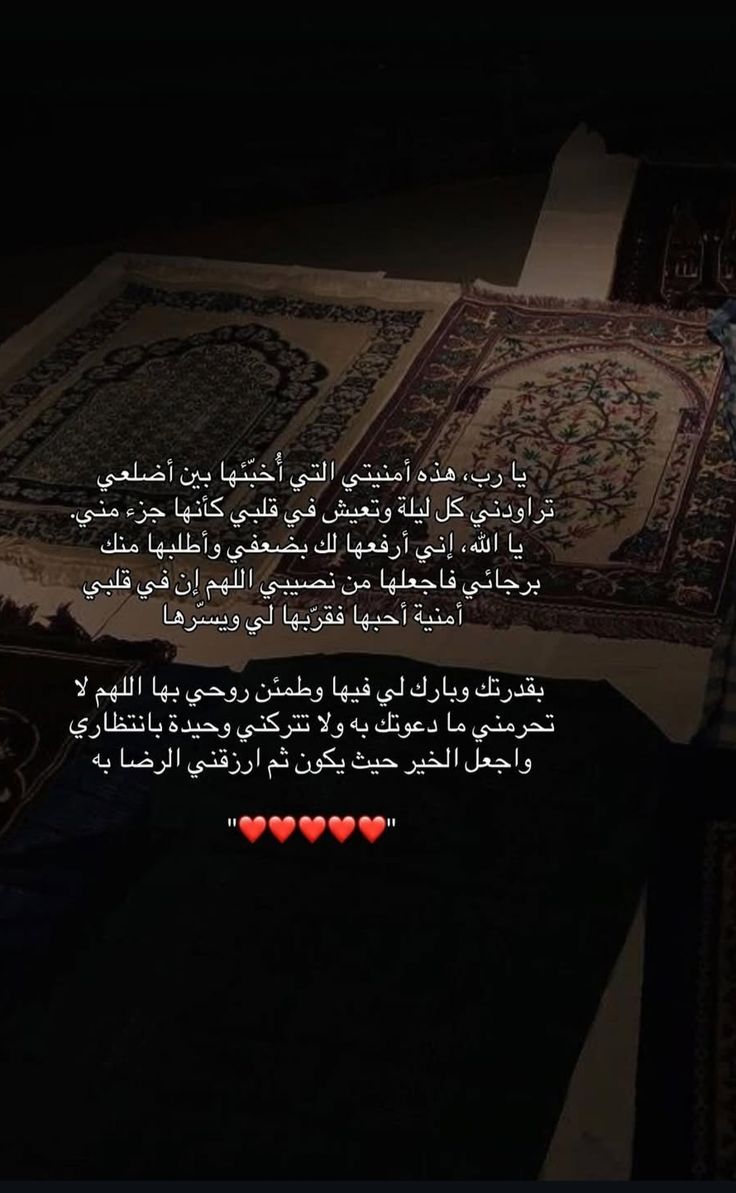 يا رب، هذه أمنيتي التي أُخبّئها بين أضلعي
تراودني كل ليلة وتعيش في قلبي كأنها جزء مني.
يا الله، إني أرفعها لك بضعفي وأطلبها منك
برجائي فاجعلها من نصيبي اللهم إن في قلبي
أمنية أحبها فقرّبها لي ويسّرها
بقدرتك وبارك لي فيها وطمئن روحي بها اللهم لا
تحرمني ما دعوتك به ولا تتركني وحيدة بانتظاري
واجعل الخير حيث يكون ثم ارزقني الرضا به
"❤️❤️❤️❤️❤️"